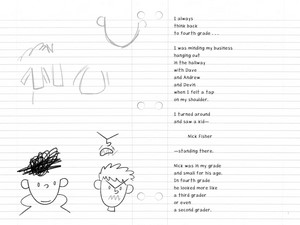 I always
think back
to fourth grade . . .
I was minding my business
hanging out
in the hallway
with Dave
and Andrew
and Devin
when I felt a tap
on my shoulder.
I turned around
and saw a kid—
Nick Fisher
—standing there.
Nick was in my grade
and small for his age.
In fourth grade
he looked more like
a third grader
or even
a second grader.